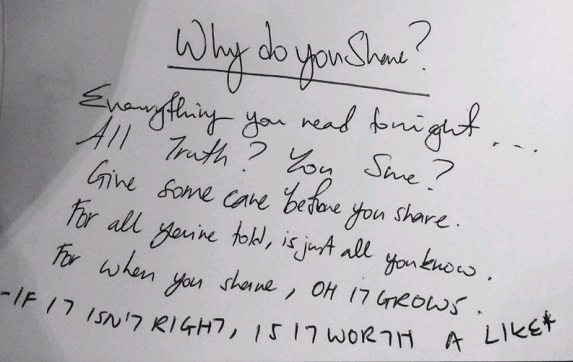 Why do you Share?
Everything you read tonight...
All Truth? You Sure?
Give some care before you share.
For all you're told, is just all you know.
For when you share, OH IT GROWS.
-IF IT ISN'T RIGHT, IS IT WORTH A LIKE*